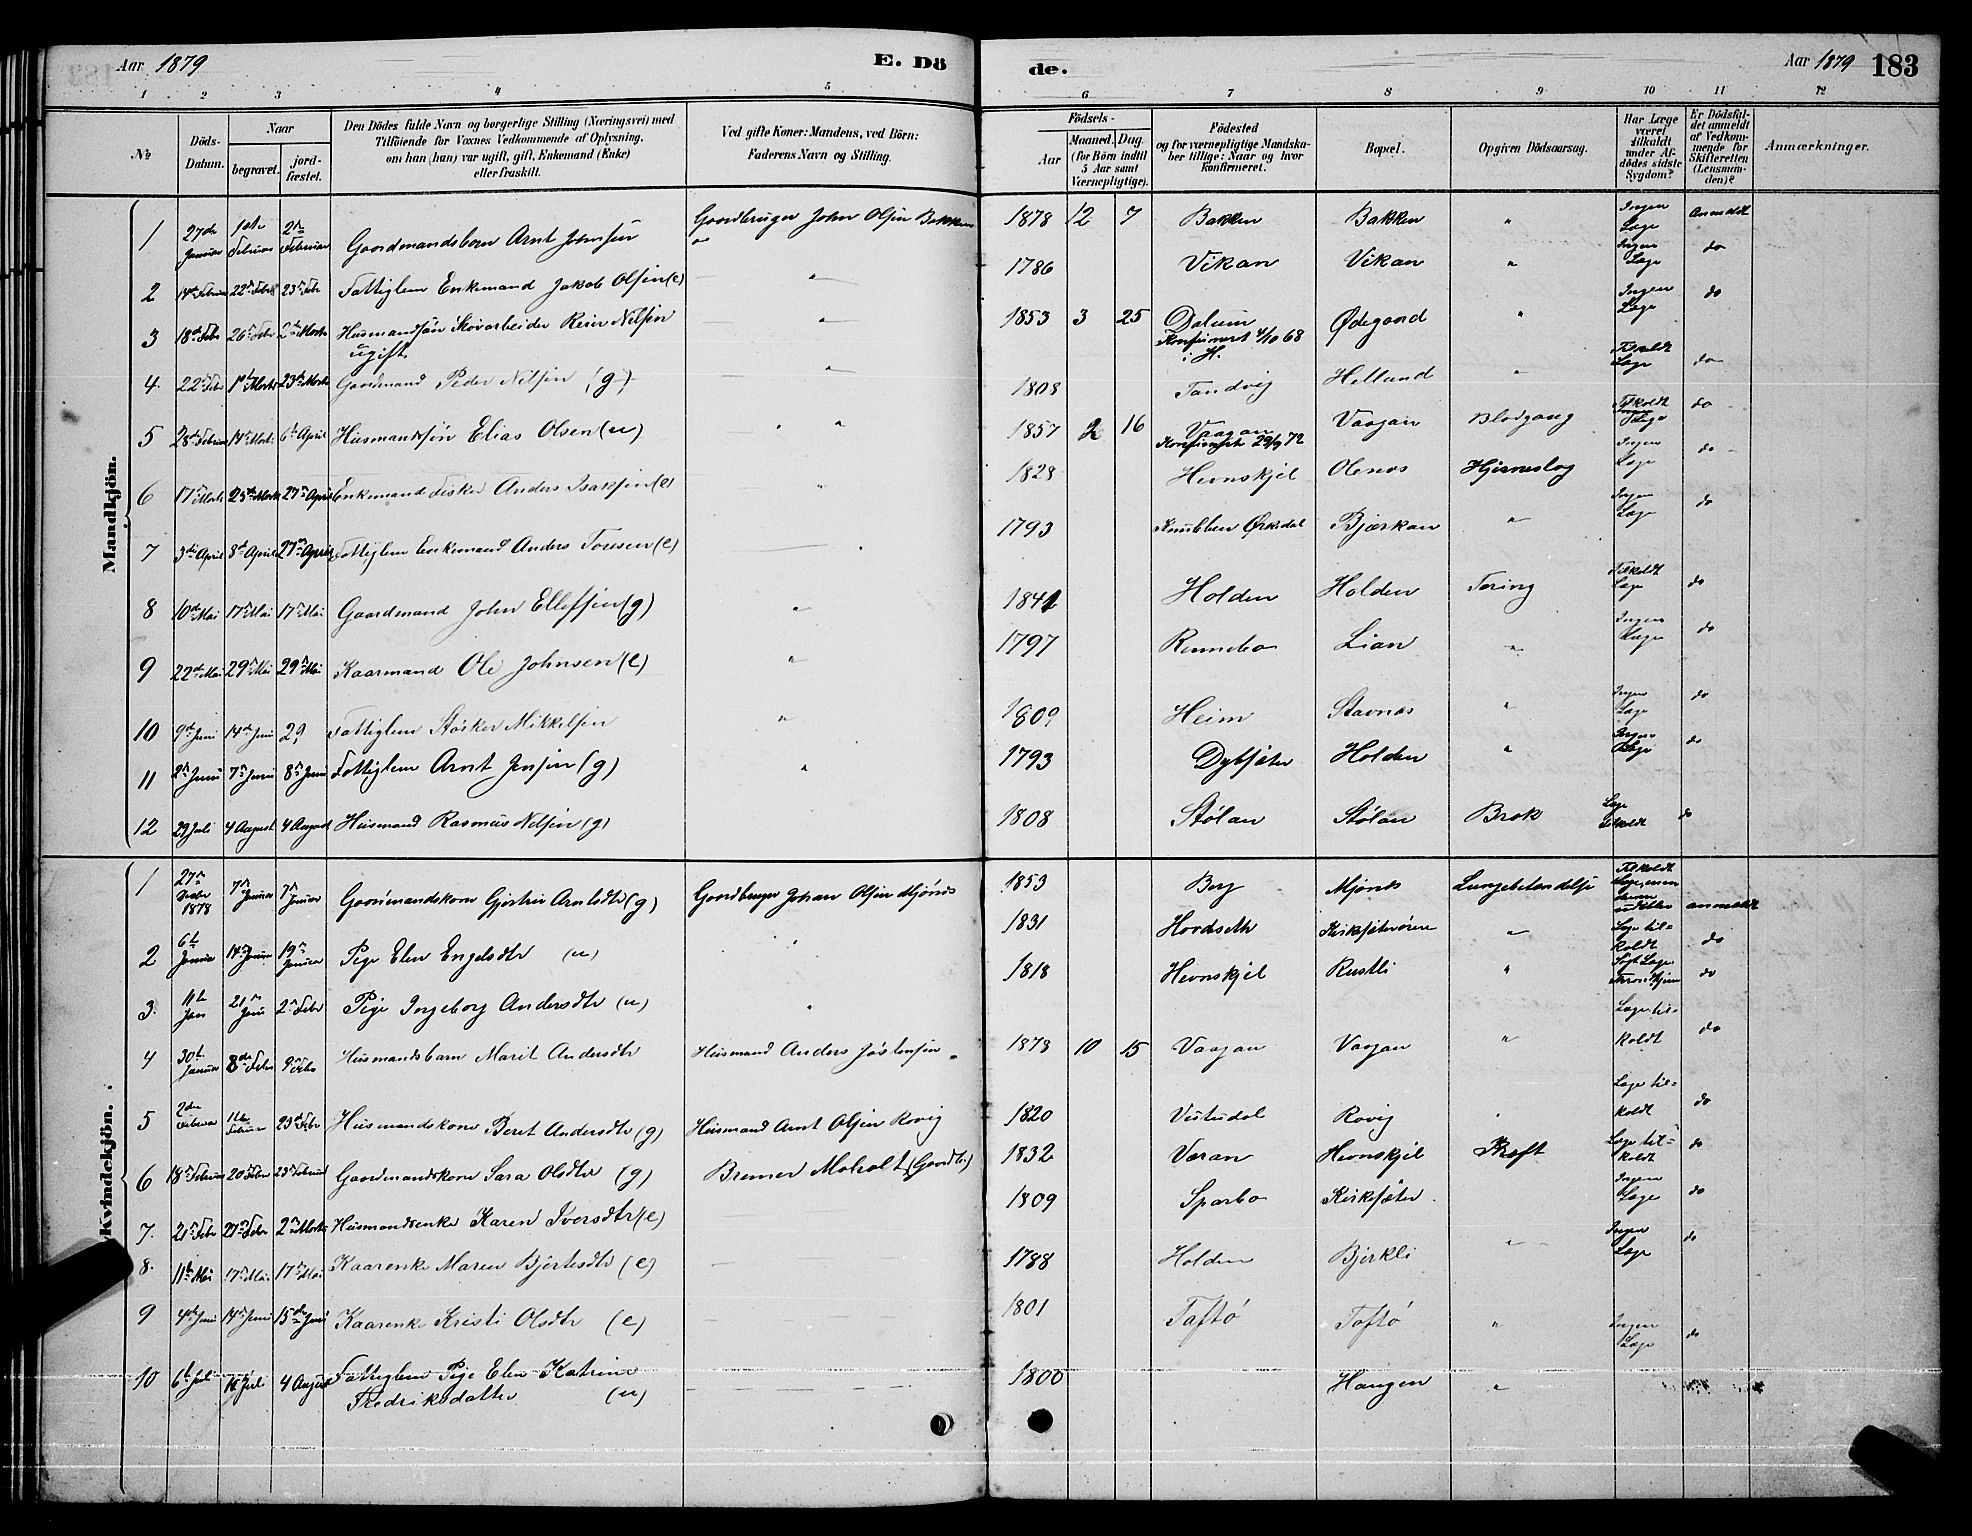 Aar 1879
E. Dö
de.
Aar 1879
183
1 2 3 4 5 6 7 8 9 10 11 12
№
Döds-Datum.
Naar
begravet.
jord-fæstet.
Den Dödes fulde Navn og borgerlige Stilling (Næringsvei) med
Tilföiende for Voxnes Vedkommende af Oplysning,
om han (hun) var ugift, gift, Enkemand (Enke)
eller fraskilt.
Ved gifte Koner: Mandens, ved Börn:
Faderens Navn og Stilling.
Födsels-
Aar
Maaned. Dag.
(for Börn indtil
5 Aar samt
Værnepligtige).
Födested
og for værnepligtige Mandska-
ber tillige: Naar og hvor
konfirmeret.
Bopæl.
Opgiven Dödsaarsag.
Har Læge
været
tilkaldt
under Af-
dödes sidste
Sygdom?
Er Dödsfal-
det anmeldt
af Vedkom-
mende for
Skifteretten
(Lensman-
den)?
Anmærkninger.
Mandkjön.
1 27de Januar 1ste Februar 2n Februar Gaardmandsbarn Arnt Johnsen Gaardbruger John Olsen Bakken 1878 12 7 Bakken Bakken " Ingen Læge Anmeldt
2 14de Februar 22n Febr 23n Febr Fattiglem Enkemand Jakob Olsen (e) " 1786 Vikan Vikan " Ingen Læge do
3 18de Febr 26n Febr 2n Marts Husmandssøn Skoarbeider Reier Nilsen ugift " 1853 3 25 Dalum Konfirmert 4/10 68 i H. Ødegaard " Ingen Læge do
4 22n Febr 1st Marts 23n Marts Gaardmand Peder Nilsen (g) " 1808 Tandvig Helland " Tilkaldt Læge do
5 28de Februar 14n Marts 6te April Husmandssøn Elias Olsen (u) " " 1857 2 16 Vaagan Konfirmert 29/9 72 Vaagan Blodgang Tilkaldt Læge do
6 17n Marts 23de Marts 27n April Enkemand Fisker Anders Isaksen (e) " 1828 Hevnskjel Olenæs Hjerneslag Ingen Læge do
7 3die April 8de April 27n April Fattiglem Enkemand Anders Toresen (e) 1793 Knubben Ørkedal Bjørkan " Ingen Læge do
8 10de Mai 17n Mai 17n Mai Gaardmand John Ellefsen (g) " 1841 Holden Holden Tæring Tilkaldt Læge do
9 22de Mai 29n Mai 29n Mai Kaarmand Ole Johnsen (e) " 1797 Rennebo Lian " Ingen Læge do
10 9de Juni 14de Juni 29 Fattiglem Størker Mikkelsen " 1809 Heim Stavnæs " Ingen Læge do
11 2n Juni 7n Juni 8n Juni Fattiglem Arnt Jensen (g) " 1793 Dybsjøter Holden " Ingen Læge do
12 29 Juli 4 August 4 August Husmand Rasmus Nilsen (g) 1808 Stølan Stølan Brok Læge tilkaldt do
Kvindekjön.
1 27n Decbr 1878 7n Januar 7n Januar Gaardmandskone Gjertru Arntsdtr (g) Gaardbruger Johan Olsen Mjønes 1853 Berg Mjønes Lungebetændelse Tilkaldt Læge, men denne udeblev anmeldt
2 6te Januar 14n Januar 19n Januar Pige Elen Engelsdtr (u) " 1831 Hordseth Kirksæterøren " Læge tilkaldt do
3. 11te Jan 21n Janu 2n Febr Pige Ingeborg Andersdtr (u) " 1818 Hevnskjel Rustli " Søgt Læge Trondhjem do
4 30te Januar 8de Febr 9n Febr Husmandsbarn Marit Andersdtr Husmand Anders Jostensen 1878 10 15 Vaagan Vaagan " Læge tilkaldt do
5 2den Februar 11te Februar 23de Febr Husmandskone Beret Andersdtr (g) Husmand Arnt Olsen Rovig 1820 Vistudal Rovig " Læge tilkaldt do
6 18n Februar 20n Febr 23n Februar Gaardmandskone Sara Olsdtr (g) Bremer Moholt (Gaardbr) 1832 Væran Hevnskjel Kræft Læge tilkaldt do
7. 21n Febr 27n Febr 2n Marts Husmandsenke Karen Iversdtr (e) 1809 Sparbo Kirksæter Ingen Læge do
8. 11te Mai 17n Mai 17n Mai Kaarenke Maren Bjørtesdtr (e) 1788 Holden Bjørkli " Ingen Læge do
9 4de Juni 14n Juni 15de Juni Kaarenke Kristi Olsdtr (e) 1801 Taftø Taftø " Ingen Læge do
10 6te Juli Juli 4 August Fattiglem Pige Elen Katrine Fredriksdatter (u) 1800 Haugen "